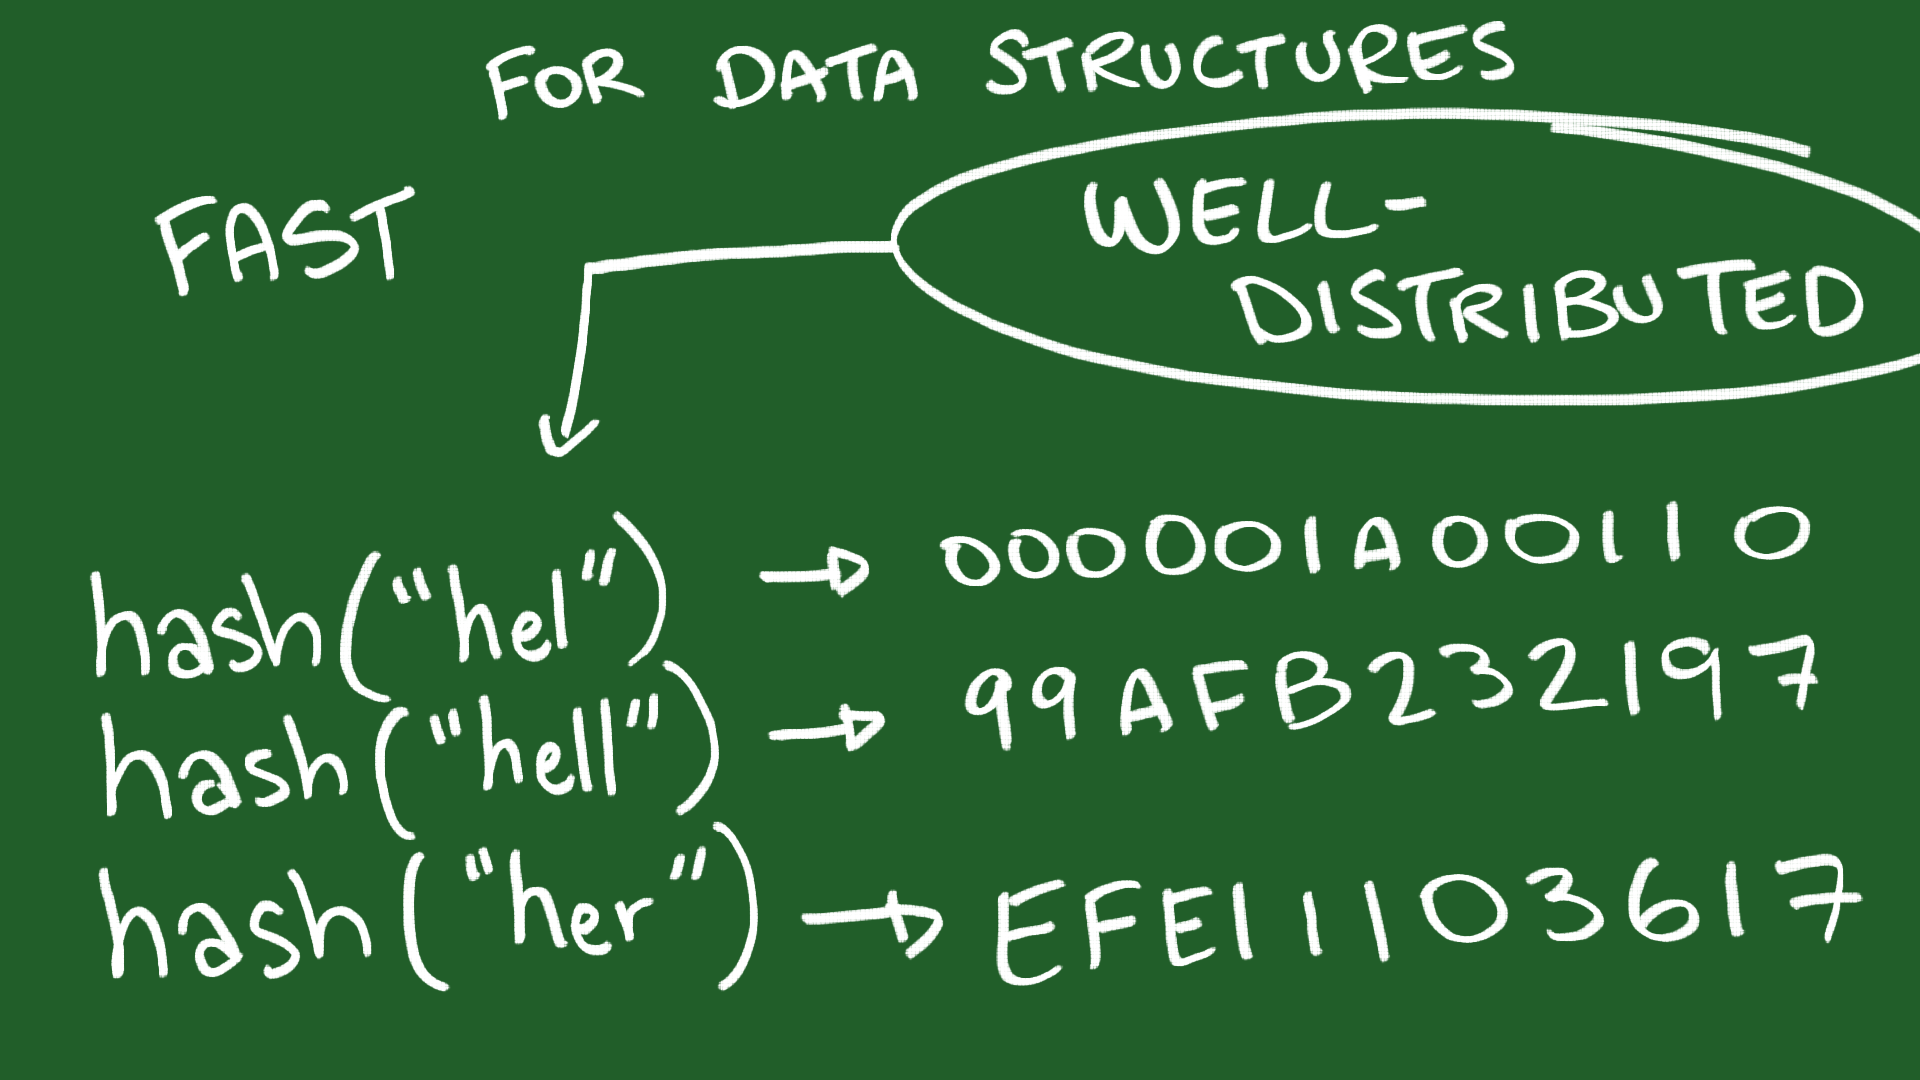 FOR DATA STRUCTURES
FAST
WELL-
DISTRIBUTED
hash("hel") → 000001A00110
hash("hell") → 99AFB232197
hash("her") → EFE11103617